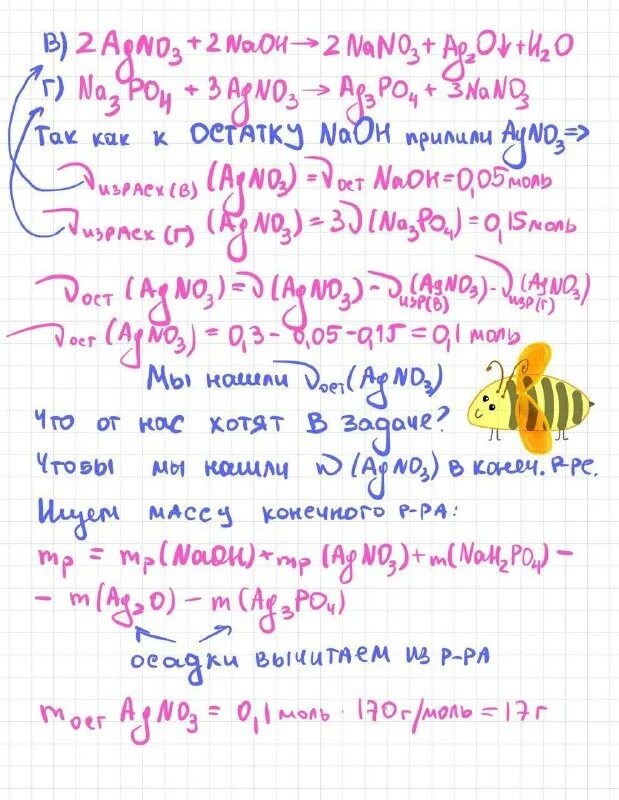 в) 2AgNO₃ + 2NaOH → 2NaNO₃ + Ag₂O↓ + H₂O
г) Na₃PO₄ + 3AgNO₃ → Ag₃PO₄ + 3NaNO₃
Так как к ОСТАТКУ NaOH прилили AgNO₃ ⇒
ν израсх(в) (AgNO₃) = ν ост NaOH = 0,05 моль
ν израсх(г) (AgNO₃) = 3ν (Na₃PO₄) = 0,15 моль
ν ост (AgNO₃) = ν (AgNO₃) - ν изр(в) (AgNO₃) - ν изр(г) (AgNO₃)
ν ост (AgNO₃) = 0,3 - 0,05 - 0,15 = 0,1 моль
Мы нашли ν ост (AgNO₃)
Что от нас хотят в задаче?
Чтобы мы нашли ω (AgNO₃) в конеч. р-ре.
Ищем массу конечного р-ра:
mр = mр (NaOH) + mр (AgNO₃) + m(NaH₂PO₄) -
- m (Ag₂O) - m (Ag₃PO₄)
осадки вычитаем из р-ра
m ост AgNO₃ = 0,1 моль · 170 г/моль = 17 г